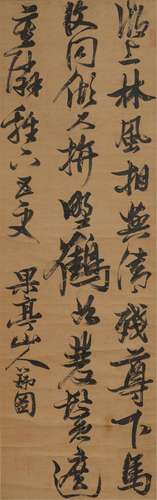 湖上林風相與清殘尊下馬
復同傾久拚野鶴如雙鬢遮
莫鄰雞下五更 果亭山人瑞圖